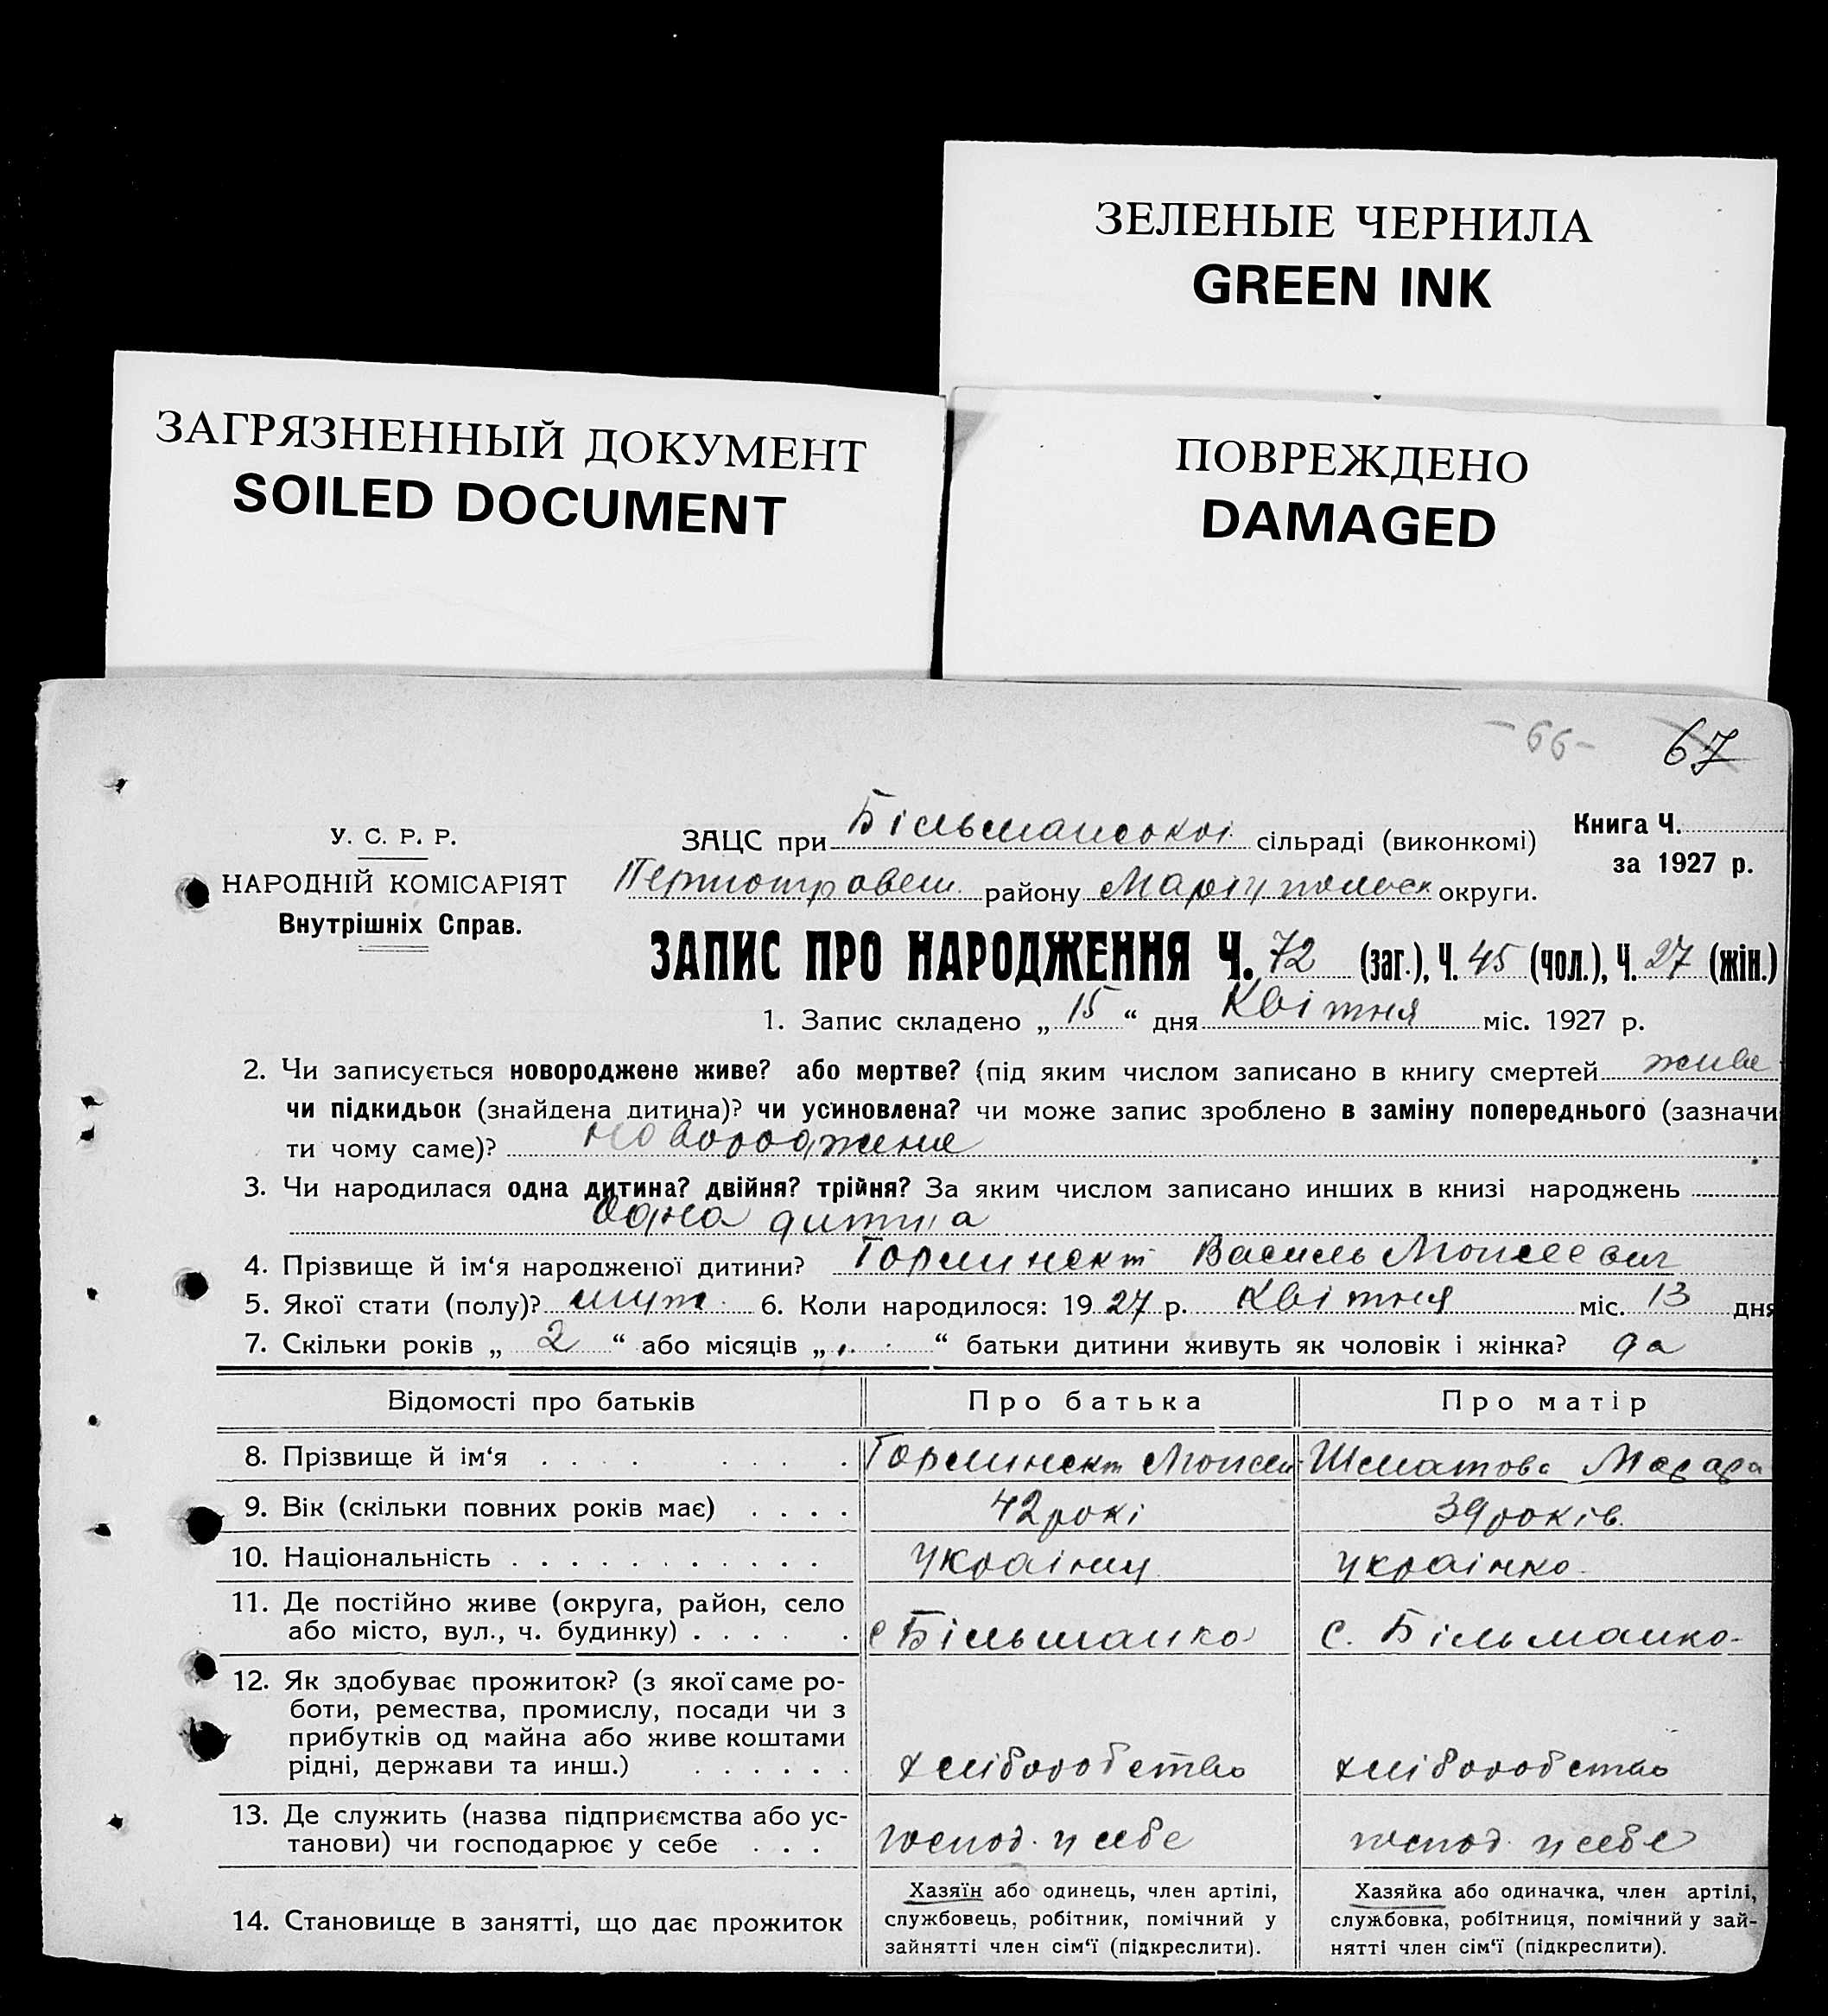 ЗЕЛЕНЫЕ ЧЕРНИЛА
GREEN INK
ЗАГРЯЗНЕННЫЙ ДОКУМЕНТ
SOILED DOCUMENT
ПОВРЕЖДЕНО
DAMAGED
-66- 67
У. С. Р. Р.
НАРОДНІЙ КОМІСАРІЯТ
Внутрішніх Справ.
ЗАЦС при Більманської сільраді (виконкомі)
району Маріупольск округи.
Книга Ч.
за 1927 р.
ЗАПИС ПРО НАРОДЖЕННЯ Ч. 72 (заг.), Ч. 45 (чол.), Ч. 27 (жін.)
1. Запис складено „ 15 “ дня Квітня міс. 1927 р.
2. Чи записується новороджене живе? або мертве? (під яким числом записано в книгу смертей живе
чи підкидьок (знайдена дитина)? чи усиновлена? чи може запис зроблено в заміну попереднього (зазначи
ти чому саме)? новороджене
3. Чи народилася одна дитина? двійня? трійня? За яким числом записано инших в книзі народжень
одна дитина
4. Прізвище й ім‘я народженої дитини? Василь Моисеевич
5. Якої стати (полу)? 6. Коли народилося: 19 27 р. Квітня міс. 13 дня
7. Скільки років „ 2 “ або місяців „ “ батьки дитини живуть як чоловік і жінка? да
Відомості про батьків
Про батька
Про матір
8. Прізвище й ім‘я . . . . . . . .
Моисей
Шматова
9. Вік (скільки повних років має) . . . .
42 рокі
39 років.
10. Національність . . . . . . . . . . . .
українц
українка
11. Де постійно живе (округа, район, село
або місто, вул., ч. будинку) . . . . .
с Більманка
с. Більманка
12. Як здобуває прожиток? (з якої саме ро-
боти, ремества, промислу, посади чи з
прибутків од майна або живе коштами
рідні, держави та инш.) . . . . . .
хлібороб ство
хлібороб ство
13. Де служить (назва підприємства або ус-
танови) чи господарює у себе . . .
господ. у себе
господ. у себе
14. Становище в занятті, що дає прожиток
Хазяїн або одинець, член артілі,
службовець, робітник, помічний у
зайнятті член сім‘ї (підкреслити).
Хазяйка або одиначка, член артілі,
службовка, робітниця, помічний у зай-
нятті член сім‘ї (підкреслити).